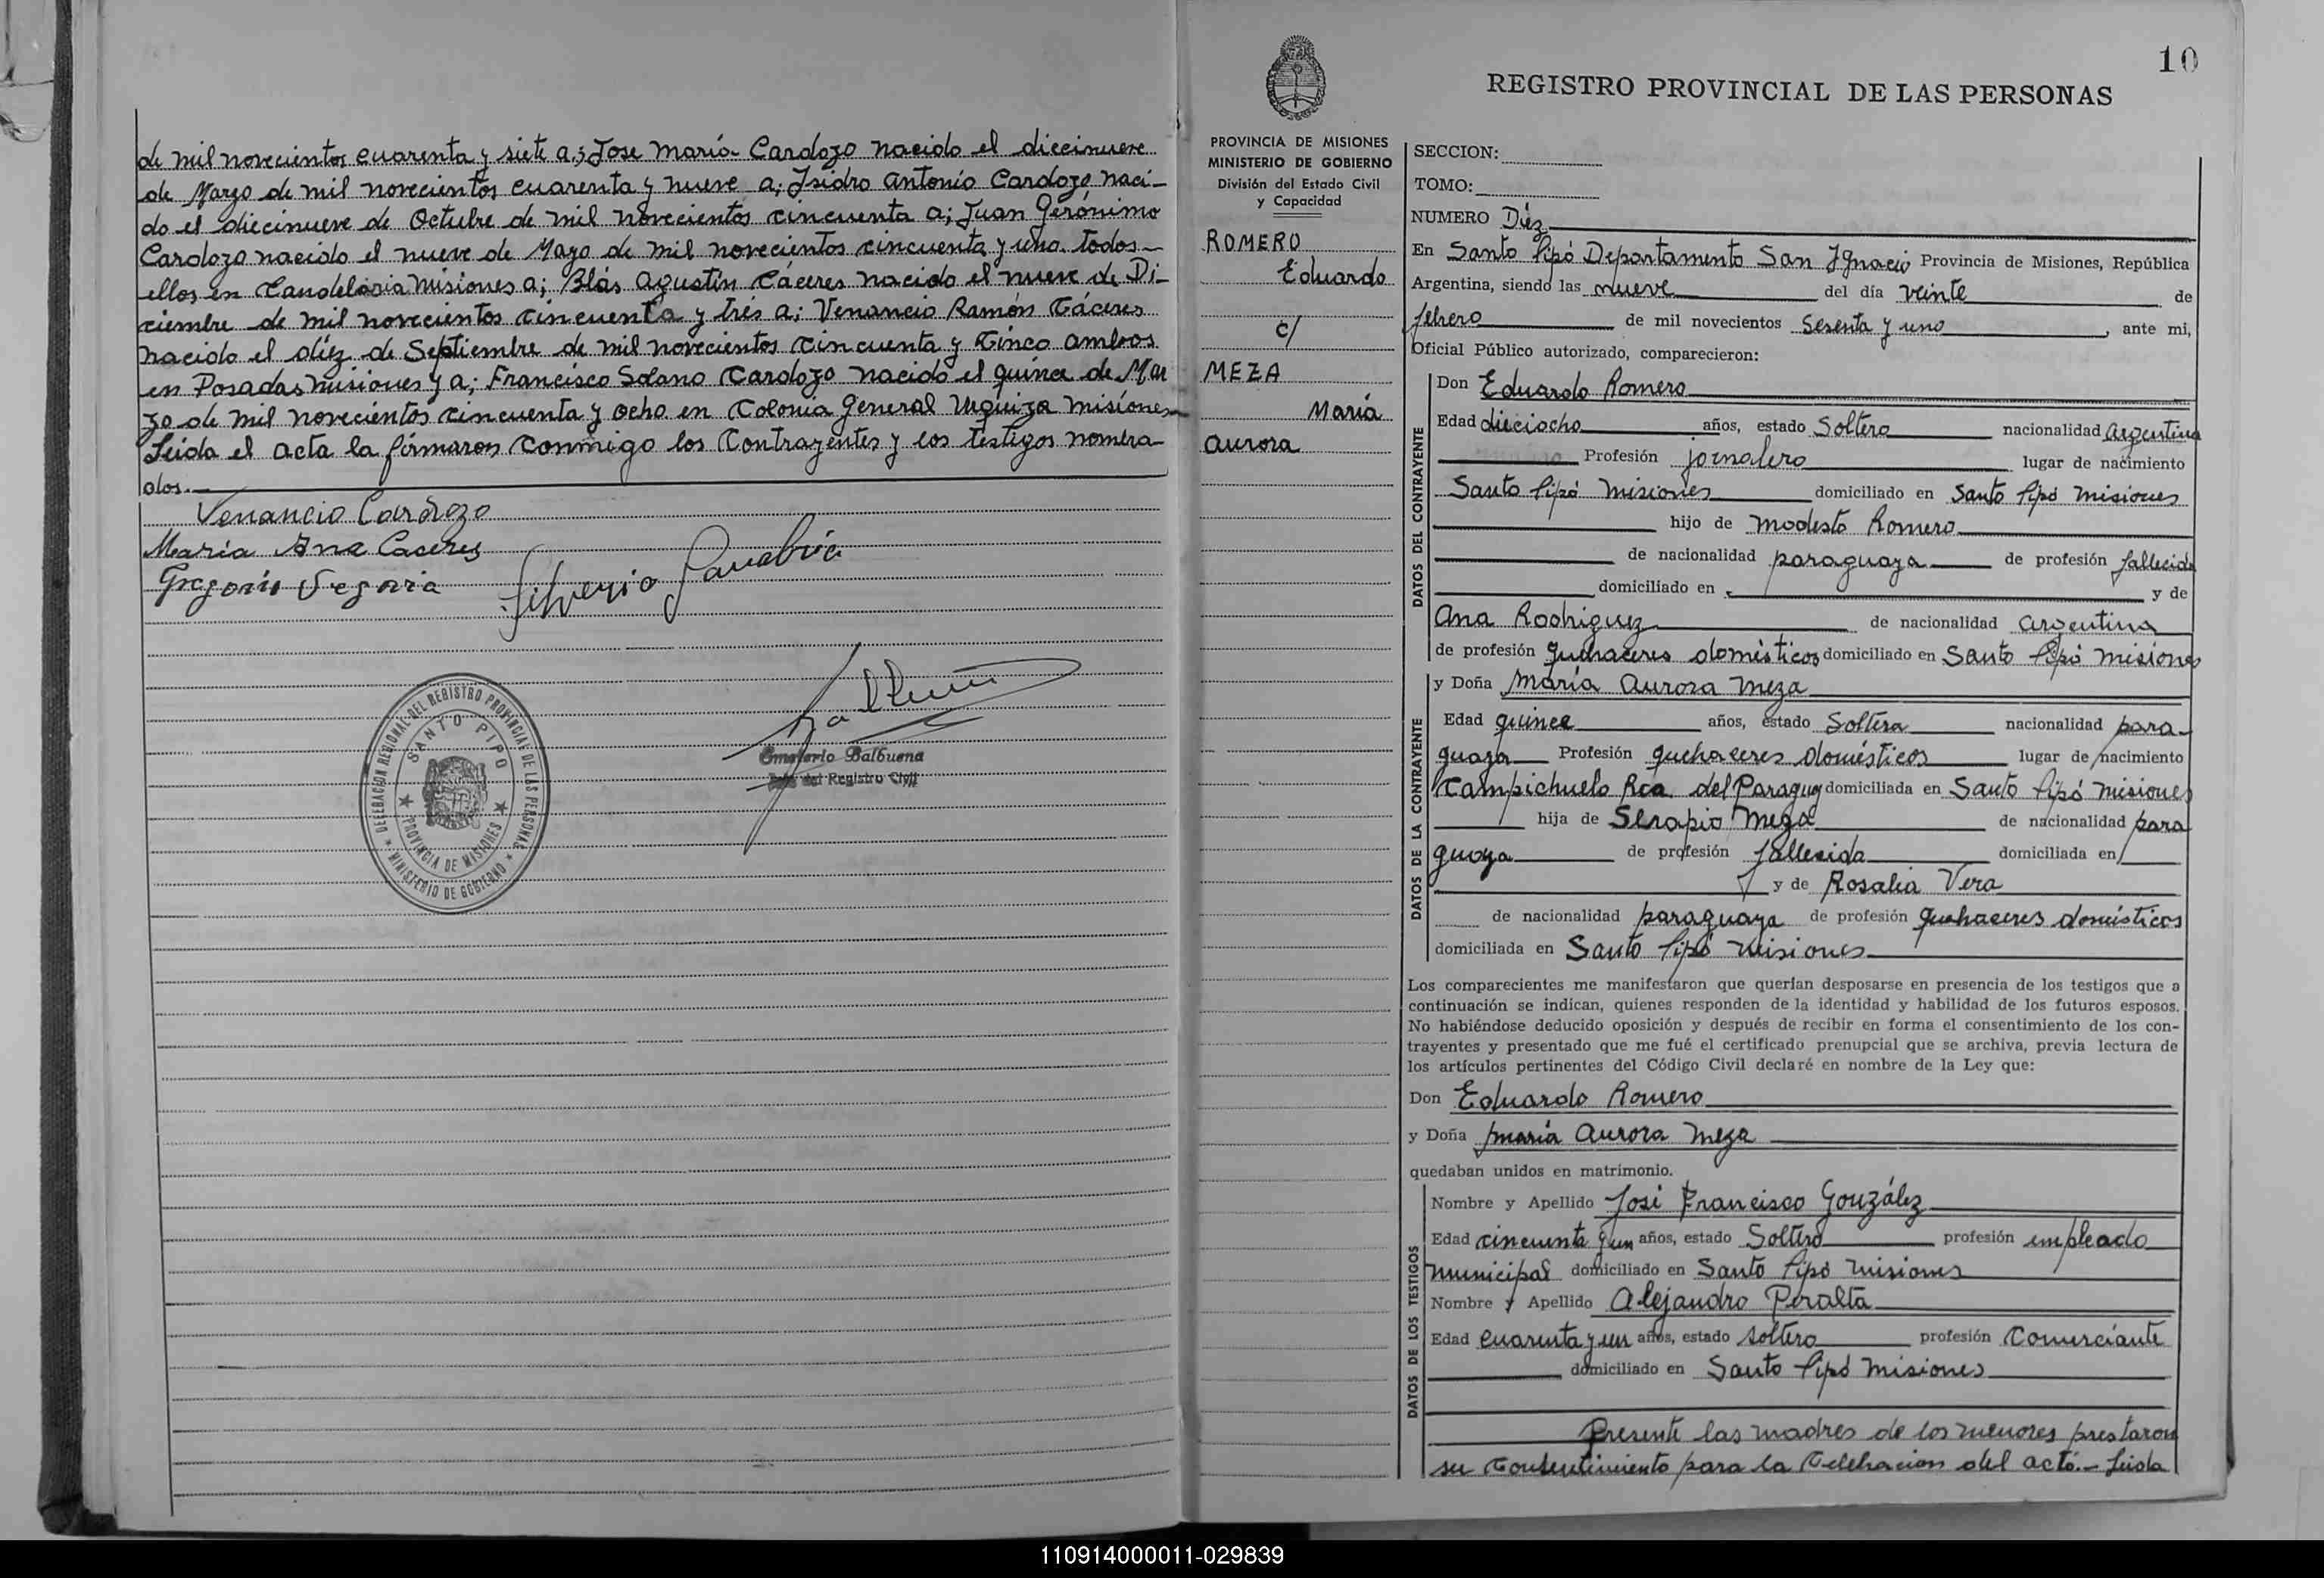 de mil novecientos cuarenta y siete a; Jose María Cardozo nacido el diecinueve
de Marzo de mil novecientos cuarenta y nueve a; Isidro Antonio Cardozo naci-
do el diecinueve de Octubre de mil novecientos cincuenta a; Juan Gerónimo
Cardozo nacido el nueve de Mayo de mil novecientos cincuenta y uno todos-
ellos en Candelaria Misiones a; Blás Agustín Cáceres nacido el nueve de Di-
ciembre de mil novecientos cincuenta y trés a; Venancio Ramón Cáceres
nacido el díez de Septiembre de mil novecientos cincuenta y Cinco ambos
en Posadas Misiones y a; Francisco Solano Cardozo nacido el quince de Mar
zo de mil novecientos cincuenta y ocho en Colonia General Urquiza misiones
Leida el acta la firmaron conmigo los Contrayentes y los testigos nombra-
dos.-
Venancio Cardozo
María Ana Caceres
Gregorio Segovia
Silverio Sanabria
DELEGACION REGIONAL DEL REGISTRO PROVINCIAL DE LAS PERSONAS
SANTO PIPO
PROVINCIA DE MISIONES
MINISTERIO DE GOBIERNO
Emeterio Balbuena
Jefe del Registro Civil
10
REGISTRO PROVINCIAL DE LAS PERSONAS
PROVINCIA DE MISIONES
MINISTERIO DE GOBIERNO
División del Estado Civil
y Capacidad
ROMERO
Eduardo
c/
MEZA
María
Aurora
SECCION:
TOMO:
NUMERO Diéz
En Santo Pipó Departamento San Ignacio Provincia de Misiones, República
Argentina, siendo las nueve del día veinte de
febrero de mil novecientos Sesenta y uno, ante mi,
Oficial Público autorizado, comparecieron:
DATOS DEL CONTRAYENTE
Don Eduardo Romero
Edad dieciocho años, estado Soltero nacionalidad argentina
Profesión jornalero lugar de nacimiento
Santo Pipó Misiones domiciliado en Santo Pipó Misiones
hijo de Modesto Romero
de nacionalidad paraguaya de profesión fallecido
domiciliado en y de
Ana Rodriguez de nacionalidad argentina
de profesión quehaceres domésticos domiciliado en Santo Pipó Misiones
DATOS DE LA CONTRAYENTE
y Doña María Aurora Meza
Edad quince años, estado Soltera nacionalidad para-
guaya Profesión quehaceres domésticos lugar de nacimiento
Campichuelo Rca. del Paraguay domiciliada en Santo Pipó misiones
hija de Serapio Meza de nacionalidad para
guaya de profesión fallecida domiciliada en
y de Rosalia Vera
de nacionalidad paraguaya de profesión quehaceres domésticos
domiciliada en Santo Pipó Misiones
Los comparecientes me manifestaron que querían desposarse en presencia de los testigos que a
continuación se indican, quienes responden de la identidad y habilidad de los futuros esposos.
No habiéndose deducido oposición y después de recibir en forma el consentimiento de los con-
trayentes y presentado que me fué el certificado prenupcial que se archiva, previa lectura de
los artículos pertinentes del Código Civil declaré en nombre de la Ley que:
Don Eduardo Romero
y Doña María Aurora Meza
quedaban unidos en matrimonio.
DATOS DE LOS TESTIGOS
Nombre y Apellido José Francisco González
Edad cincuenta y un años, estado Soltero profesión empleado
municipal domiciliado en Santo Pipó Misiones
Nombre y Apellido Alejandro Peralta
Edad cuarenta y un años, estado soltero profesión Comerciante
domiciliado en Santo Pipó Misiones
Presente las madres de los menores prestaron
su Consentimiento para la Celebracion del acto.- Leida
110914000011-029839